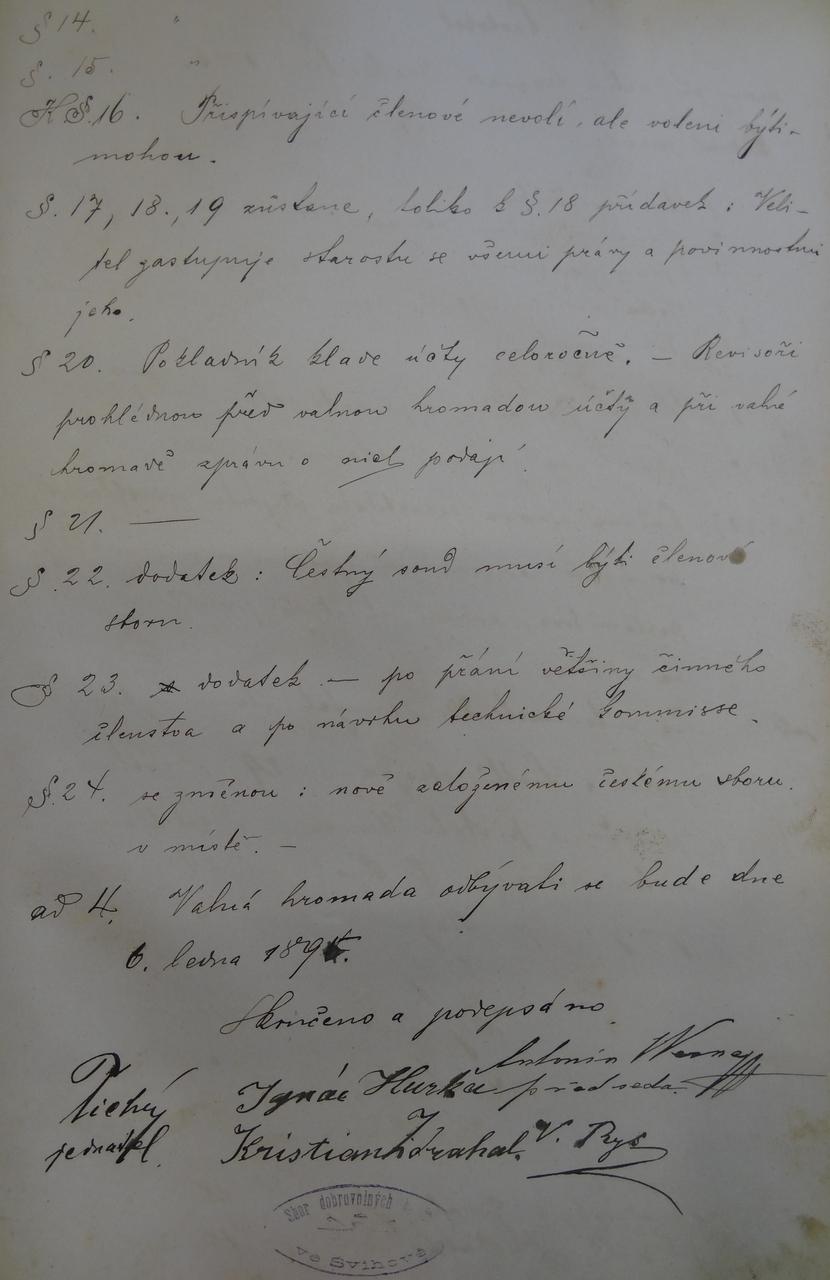 § 14. "
§. 15. "
K §.16. Přispívající členové nevolí, ale voleni býti-
mohou.
§. 17, 18., 19 zůstane, toliko k §.18 přídavek: Veli-
tel zastupuje starostu se všemi právy a povinnostmi
jeho.
§ 20. Pokladník klade účty celoročně. — Revisoři
prohlédnou před valnou hromadou účty a při valné
hromadě zprávu o nich podají.
§ 21. —
§. 22. dodatek: Čestný soud musí býti členové
sboru.
§ 23. dodatek — po přání většiny činného
členstva a po návrhu technické kommisse.
§. 24. se změnou: nově založenému českému sboru.
v místě. —
ad 4. Valná hromada odbývati se bude dne
6. ledna 189
Skončeno a podepsáno
Antonín
Tichý Ignác předseda.
jednatel. Kristian V. Rys
Sbor dobrovolných
ve Svihově